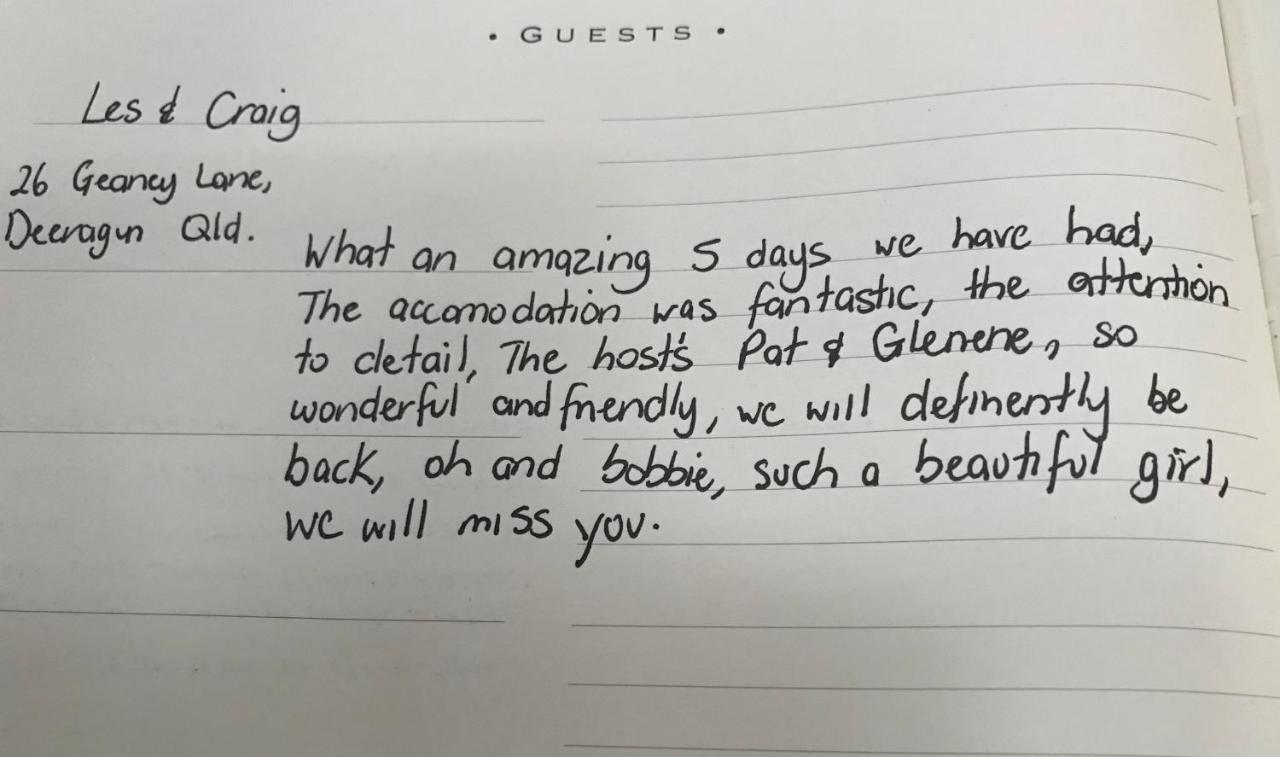 • GUESTS •
Les & Craig
26 Geaney Lane,
Deeragun Qld.
What an amazing 5 days we have had,
The accomodation was fantastic, the attention
to detail, The host's Pat & Glenene, so
wonderful and friendly, we will definently be
back, oh and bobbie, such a beautiful girl,
we will miss you.